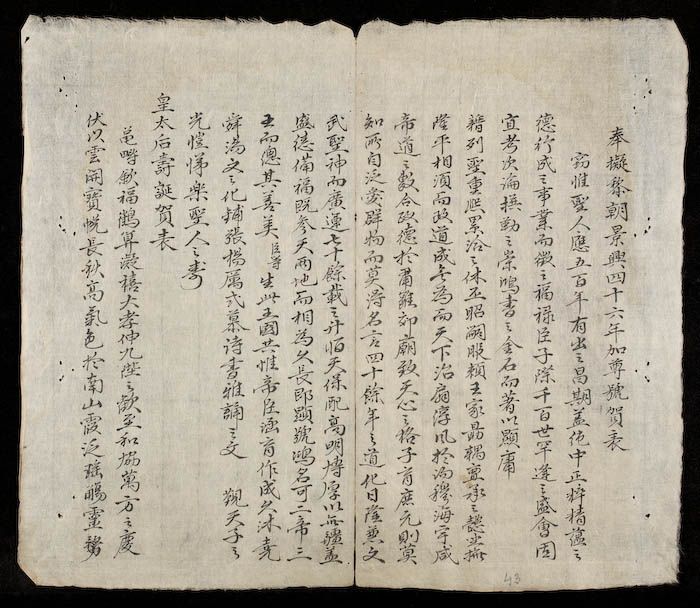 奉擬黎朝景興四十六年加尊號賀表
竊惟聖人應五百年有出之昌期蓋純中正粹精蘊之
德行成之事業而徵之福祿臣子際千百世罕逢之盛會固
宜考次論撰勒之崇鴻書之金石而著以顯庸
籍列聖重熙累洽之休丕昭嗣服賴王家勗耦亶承之
隆平相須而政道成無為而天下治扇淳風於海宇咸
帝道之數合政德於肅雝郊廟致天心之格子育庶元則莫
知所自泛愛群物而莫得名言四十餘年之道化日隆兼文
武聖神而廣運七十餘載之升恒天保配高明博厚以無疆蓋
盛德備福既參天兩地而相為久長即顯號鴻名可二帝三
王而總其善美臣等生此王國共惟帝臣涵育作成久沐堯
舜湯文之化鋪張揚厲式慕詩書雅誦之文 覲天子之
光愷悌樂聖人之壽
皇太后壽誕賀表
範疇歛福鶴算凝禧大孝伸九陛之歡至和協萬方之慶
伏以雲開寶幌長秋高氣色於南山霞泛瑤觴靈婺
43